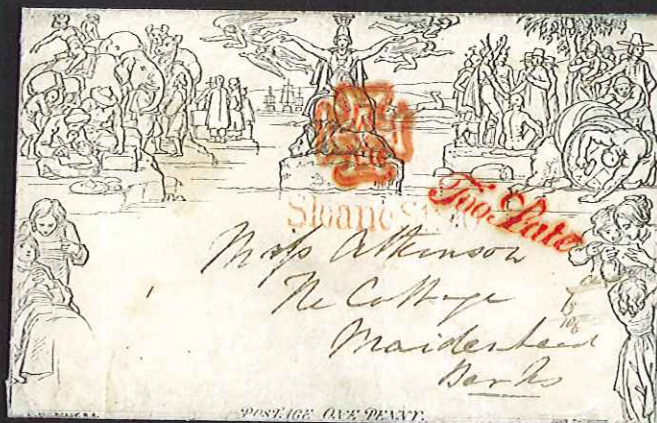 Sloane St
Too Late
Miss Atkinson
The Cottage
Maidenhead
Berks
POSTAGE ONE PENNY.